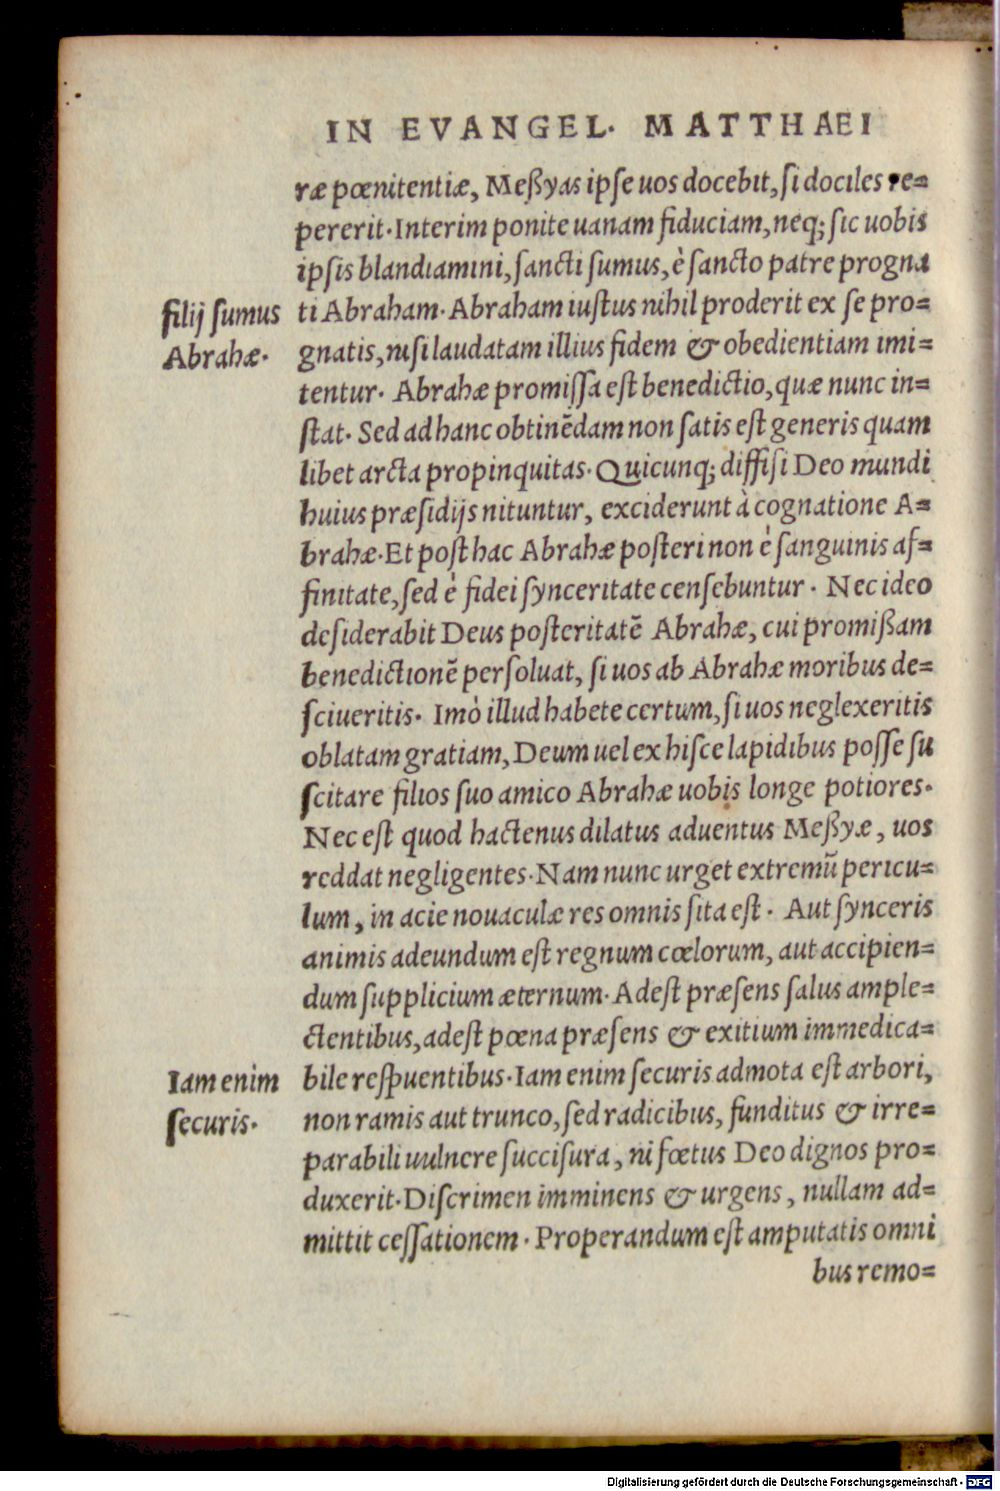 IN EVANGEL. MATTHAEI
ræ pœnitentiæ, Meßyas ipse uos docebit, si dociles re=
pererit. Interim ponite uanam fiduciam, neq; sic uobis
ipsis blandiamini, sancti sumus, è sancto patre progna
filij sumus
Abrahæ.
ti Abraham. Abraham iustus nihil proderit ex se pro=
gnatis, nisi laudatam illius fidem & obedientiam imi=
tentur. Abrahæ promissa est benedictio, quæ nunc in=
stat. Sed ad hanc obtinẽdam non satis est generis quam
libet arcta propinquitas. Quicunq; diffisi Deo mundi
huius præsidijs nituntur, exciderunt à cognatione A=
brahæ. Et posthac Abrahæ posteri non è sanguinis af=
finitate, sed è fidei synceritate censebuntur. Nec ideo
desiderabit Deus posteritatẽ Abrahæ, cui promißam
benedictionẽ persoluat, si uos ab Abrahæ moribus de=
sciueritis. Imò illud habete certum, si uos neglexeritis
oblatam gratiam, Deum uel ex hisce lapidibus posse su
scitare filios suo amico Abrahæ uobis longe potiores.
Nec est quod hactenus dilatus aduentus Meßyæ, uos
reddat negligentes. Nam nunc urget extremũ pericu=
lum, in acie nouaculæ res omnis sita est. Aut synceris
animis adeundum est regnum cœlorum, aut accipien=
dum supplicium æternum. Adest præsens salus ample=
ctentibus, adest pœna præsens & exitium immedica=
Iam enim
securis.
bile respuentibus. Iam enim securis admota est arbori,
non ramis aut trunco, sed radicibus, funditus & irre=
parabili uulnere succisura, ni fœtus Deo dignos pro=
duxerit. Discrimen imminens & urgens, nullam ad=
mittit cessationem. Properandum est amputatis omni
bus remo=
Digitalisierung gefördert durch die Deutsche Forschungsgemeinschaft - DFG